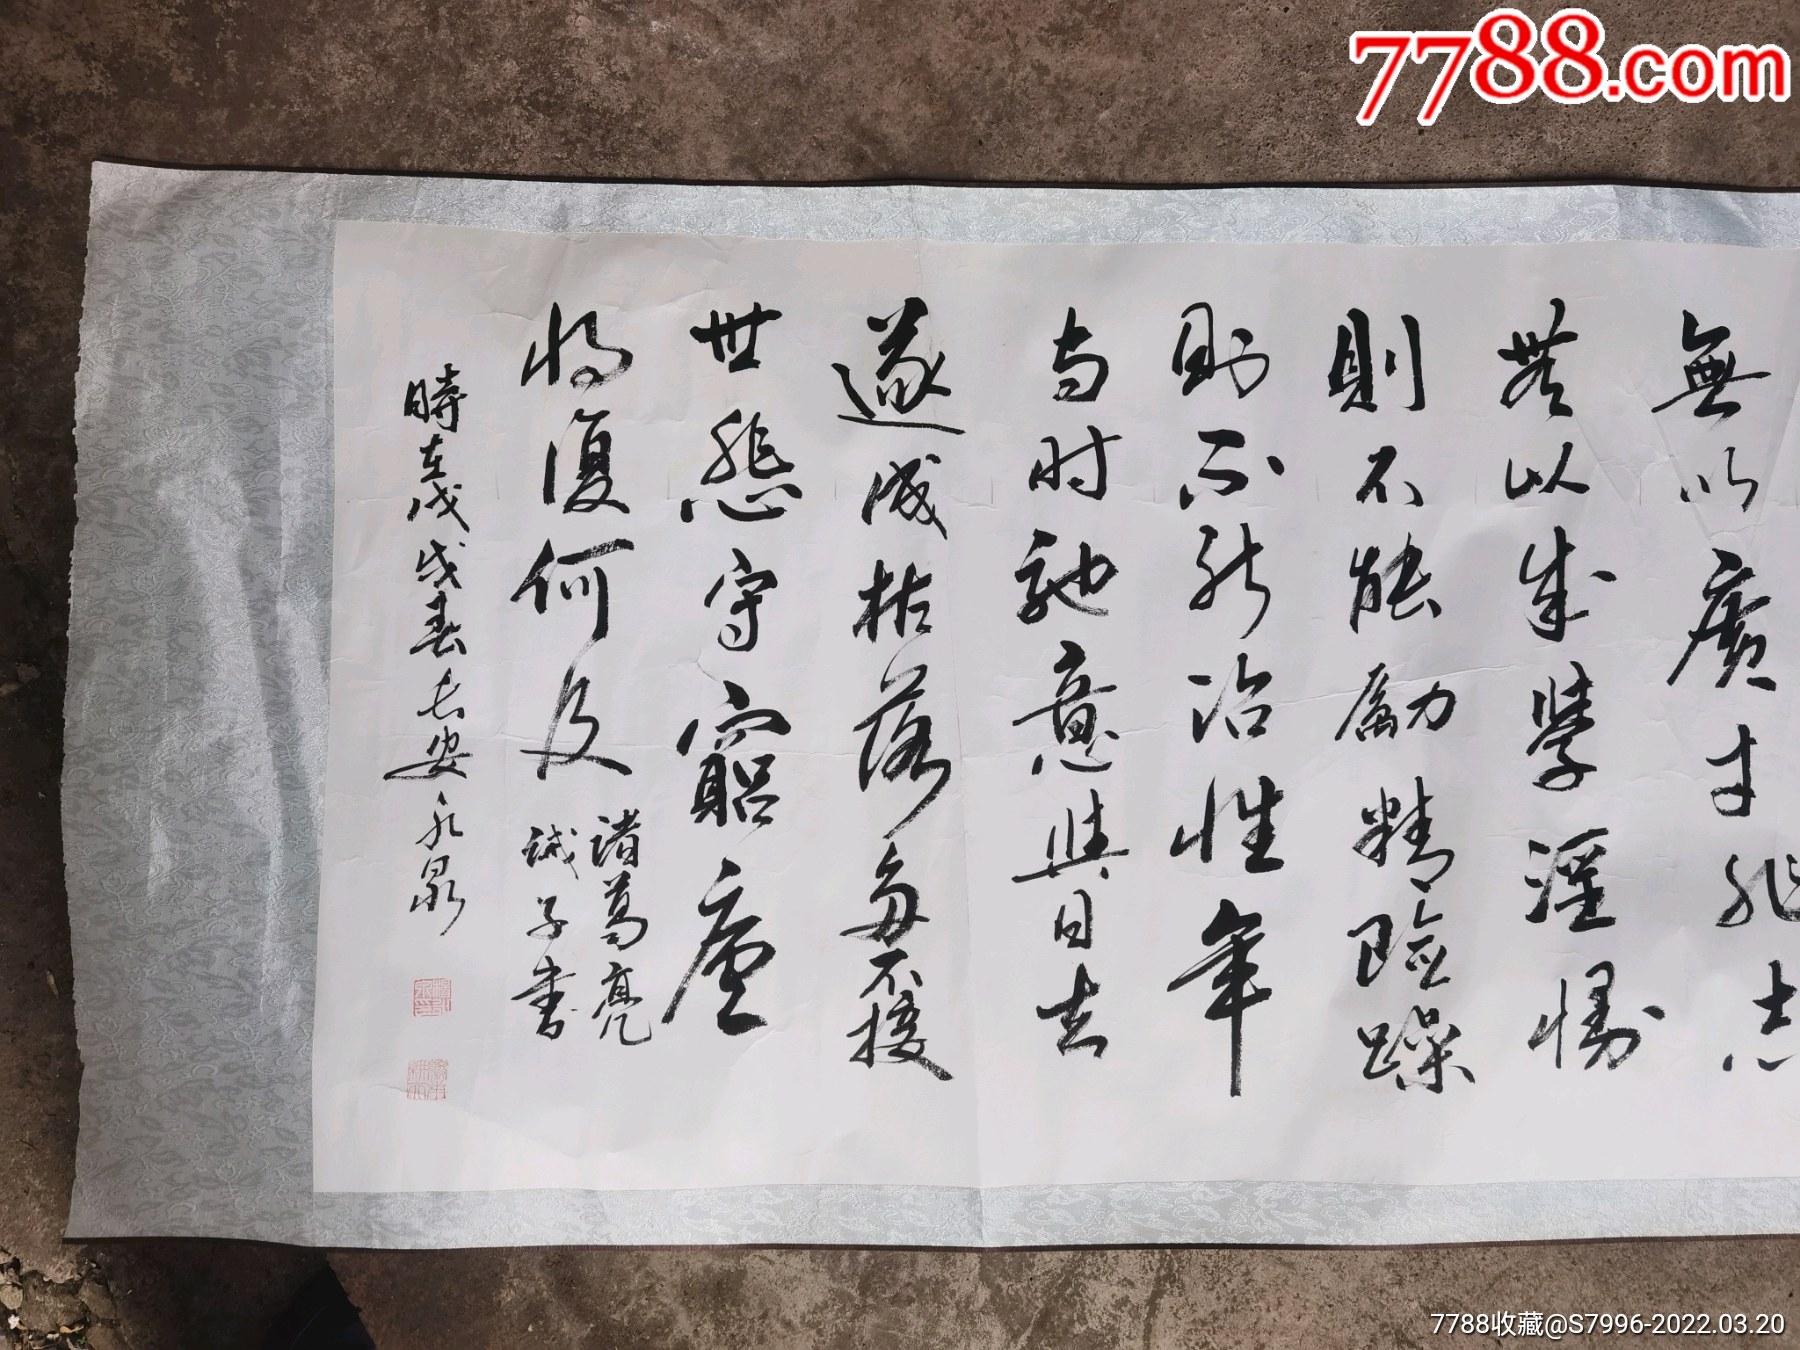 7788.com
無以廣才非志
無以成學淫慢
則不能勵精險躁
則不能冶性年
与时馳意與日去
遂成枯落多不接
世悲守窮廬
将復何及
諸葛亮
誡子書
時在戊戌春長安永泉
7788收藏@S7996-2022.03.20